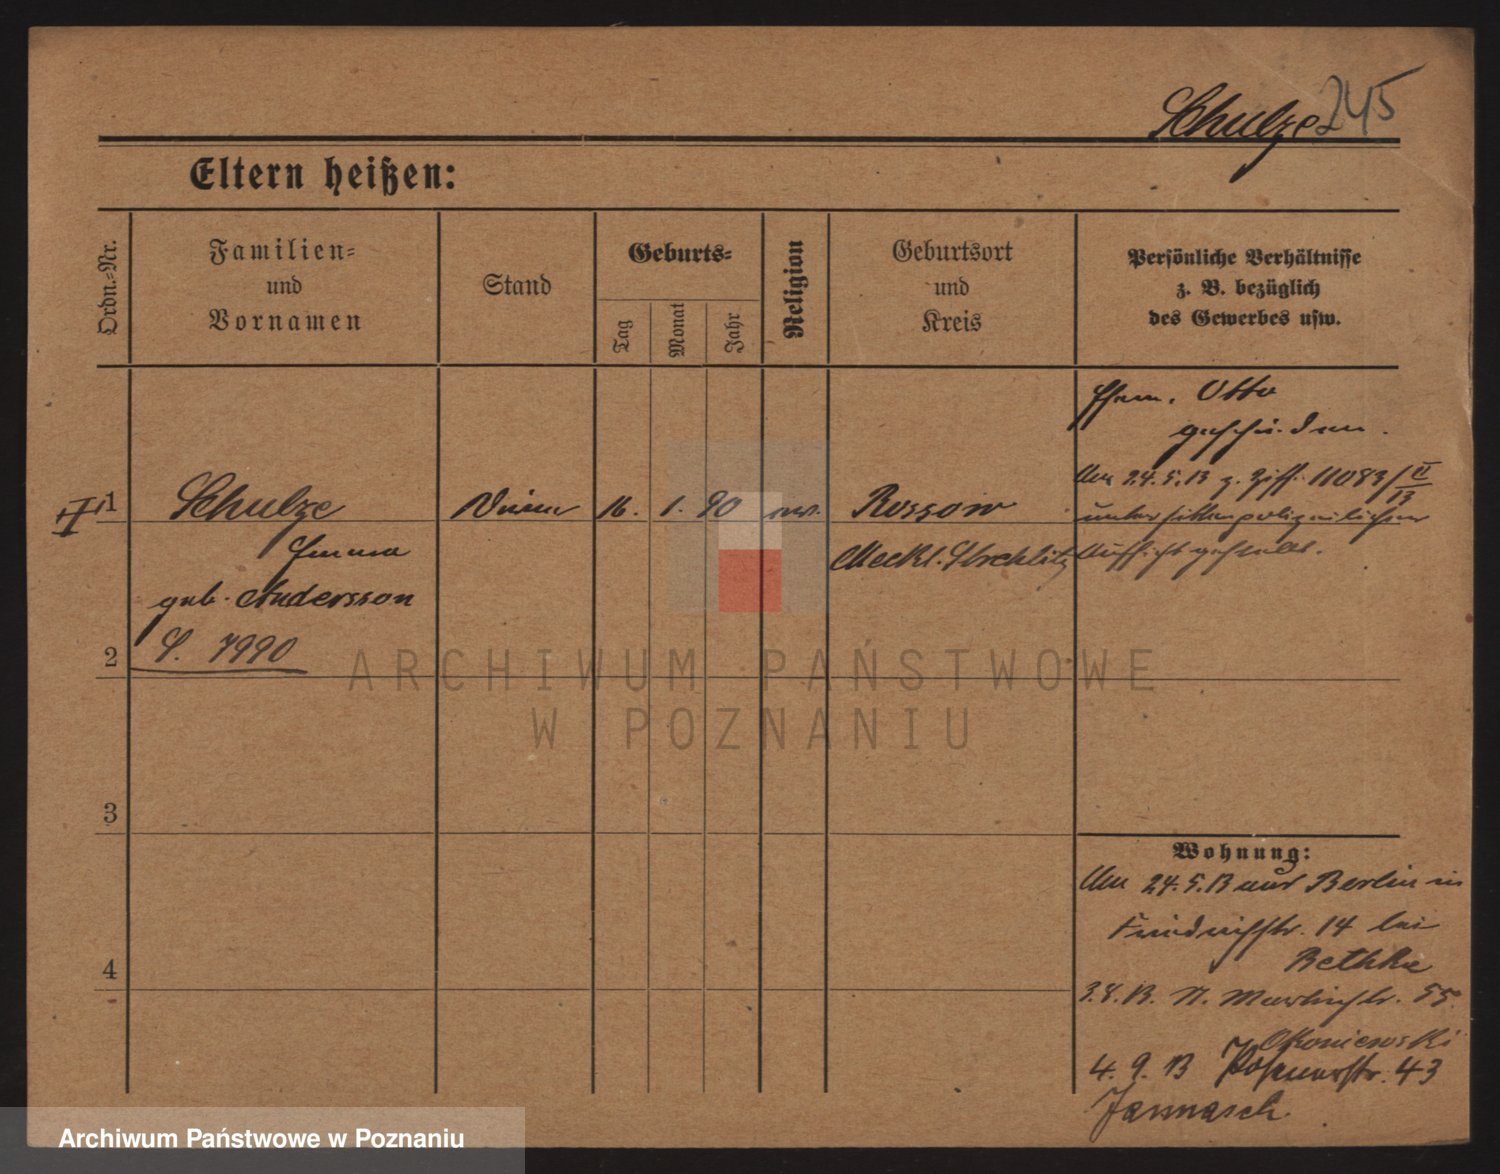 Schulze 245
Eltern heißen:
Ordn.=Nr.
Familien=
und
Vornamen
Stand
Geburts=
Tag
Monat
Jahr
Religion
Geburtsort
und
Kreis
Persönliche Verhältnisse
z. B. bezüglich
des Gewerbes usw.
Ehem. Otto
geschieden.
Am 24.5.13 z. Ziff. 11083/II 13
unter sittenpolizeilicher
Aufsicht gestellt.
II
1 Schulze 16. 1. 90 ev. Rossow
Emma Meckl. Strehlitz
geb. Andersson
2 S. 7990
3
4
Wohnung:
Am 24.5.13 aus Berlin in
Friedrichstr. 14 bei
Bethke
3.8.13. N. Martinstr. 55.
Okoniewski
4. 9. 13 Posenerstr. 43
Jasmasch.
ARCHIWUM PAŃSTWOWE
W POZNANIU
Archiwum Państwowe w Poznaniu